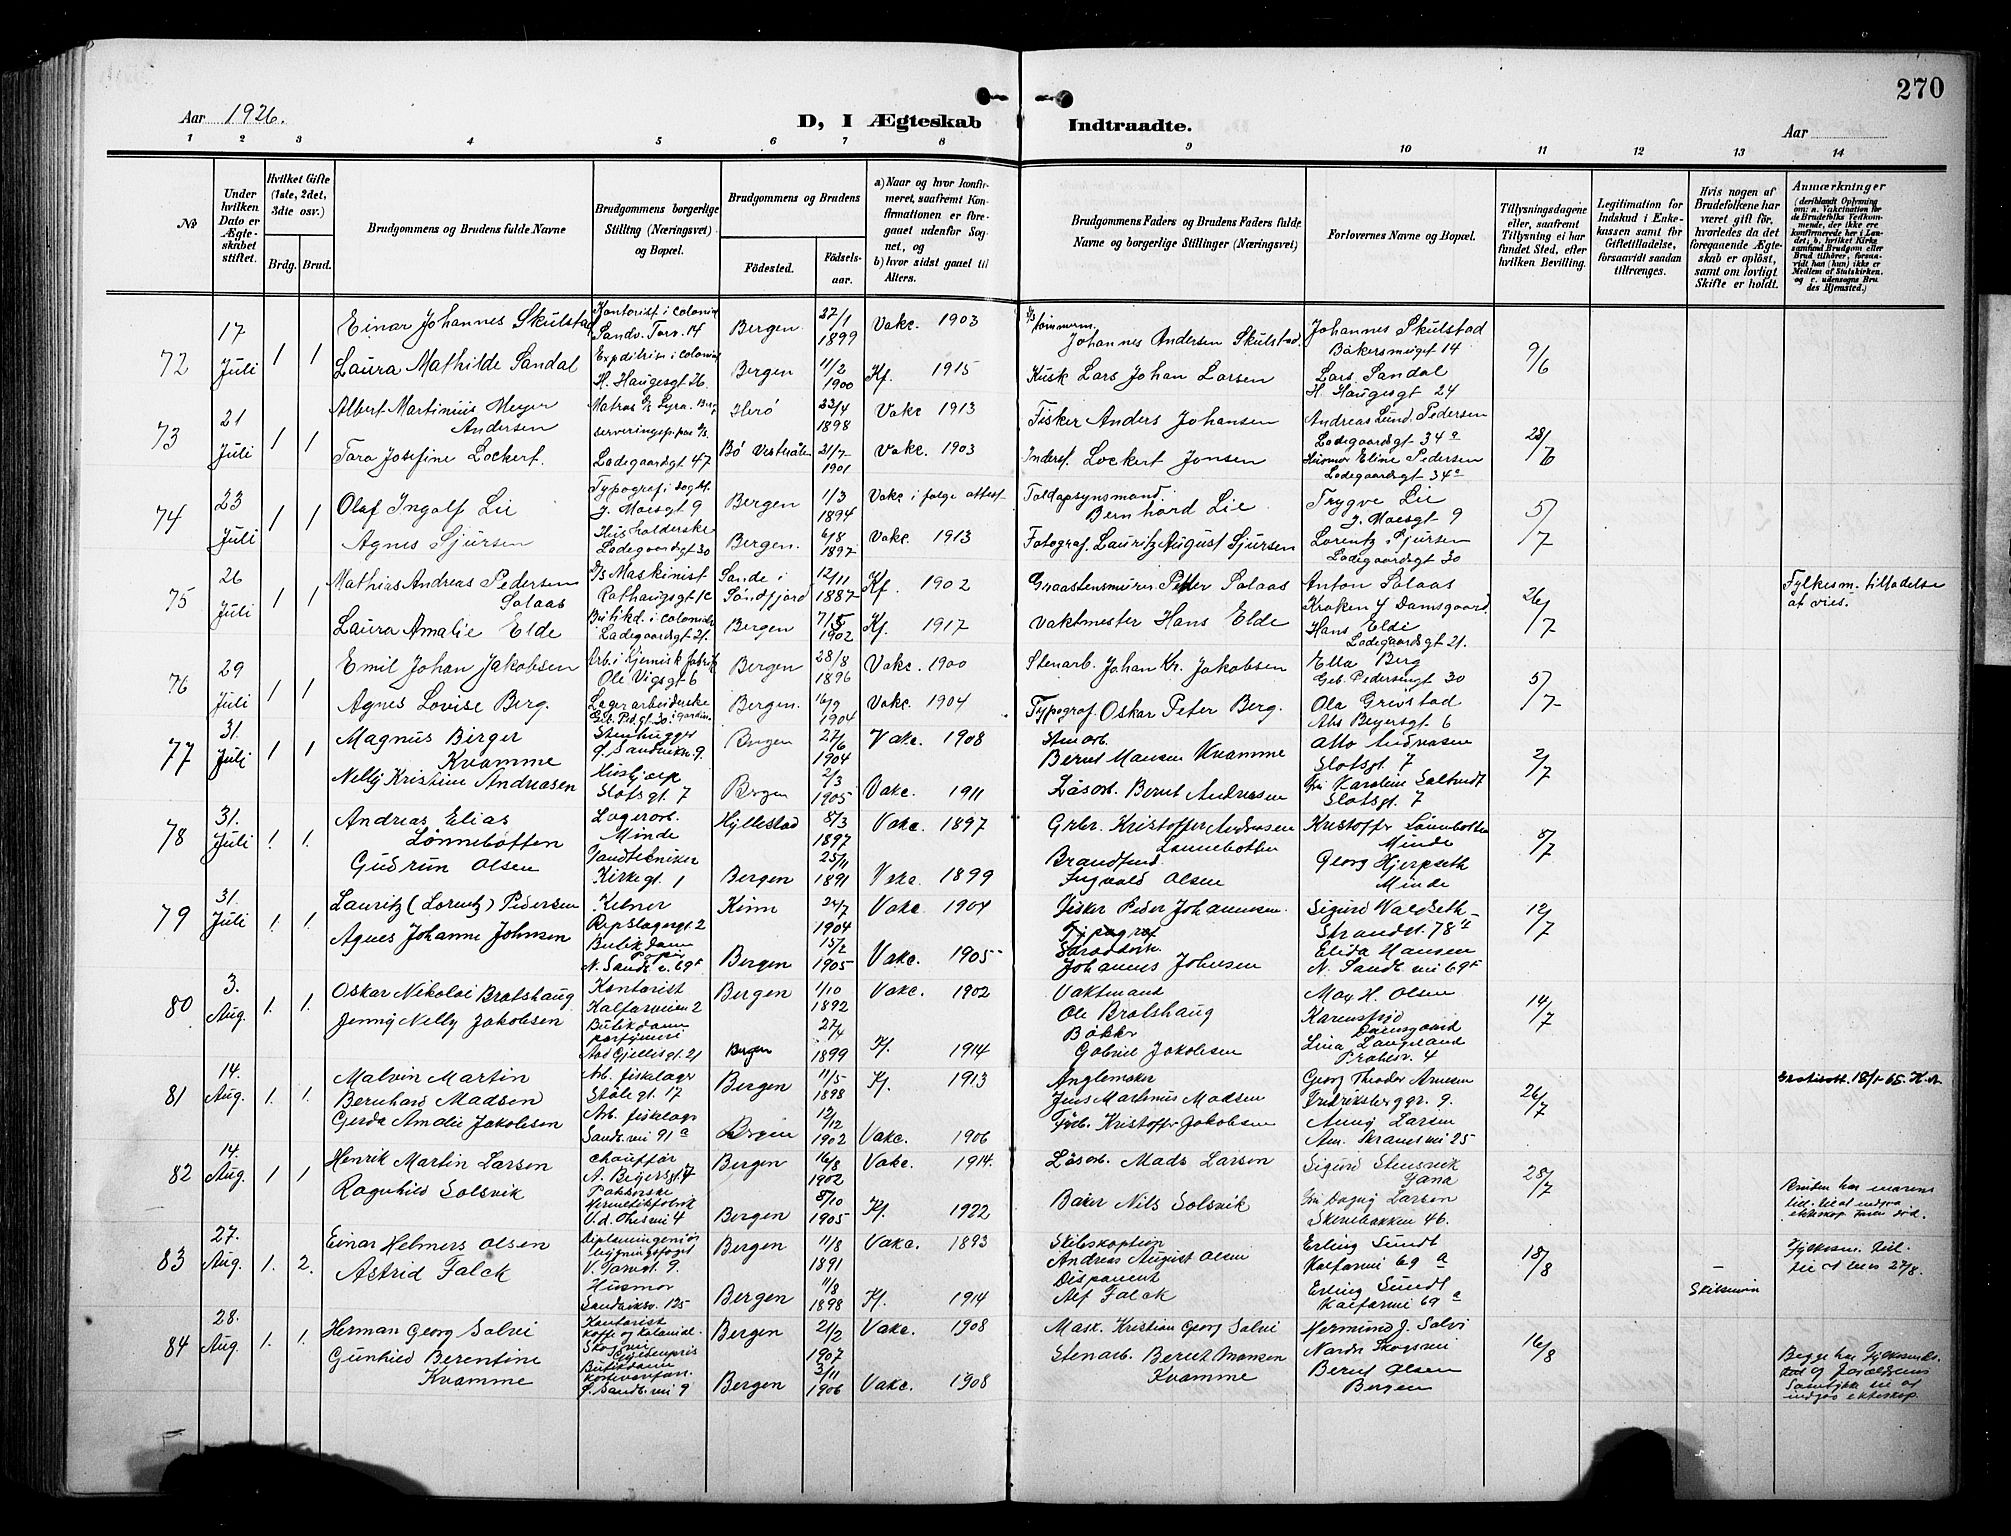 270
Aar 1926.
D, I Ægteskab Indtraadte.
Aar
1 2 3 4 5 6 7 8 9 10 11 12 13 14
№
Under hvilken Dato er Ægteskabet stiftet.
Hvilket Gifte (1ste, 2det, 3die osv.)
Brdg. Brud.
Brudgommens og Brudens fulde Navne
Brudgommens borgerlige Stilling (Næringsvei) og Bopæl.
Brudgommens og Brudens
Fødested. Fødselsaar.
a) Naar og hvor konfirmeret, saafremt Konfirmationen er foregaaet udenfor Sognet, og
b) hvor sidst gaaet til Alters.
Brudgommens Faders og Brudens Faders fulde Navne og borgerlige Stillinger (Næringsvei)
Forlovernes Navne og Bopæl.
Tillysningsdagene eller, saafremt Tillysning ei har fundet Sted, efter hvilken Bevilling.
Legitimation for Indskud i Enkekassen samt for Giftetilladelse, forsaavidt saadan tiltrænges.
Hvis nogen af Brudefolkene har været gift før, hvorledes da det foregaaende Ægteskab er opløst, samt om lovligt Skifte er holdt.
Anmærkninger (deriblandt Oplysning om: a. Vakcination for de Brudefolks Vedkommende, der ikke ere konfirmerede her i Landet; b. hvilket Kirkesamfund Brudgom eller Brud tilhører, forsaavidt han (hun) ikke er Medlem af Statskirken, og c. udensogns Brudes Hjemsted.)
72 17 Juli 1 1
Einar Johannes Skulstad Kontorist i colonial Sandv. Torv. 14 Bergen 27/1 1899 Vakc. 1903 Johannes Andersen Skulstad. Johannes Skulstad 14 9/6
Laura Mathilde Sandal H. Haugesgt 26 Bergen 11/2 1900 Kf. 1915 Kusk Lars Johan Larsen Lars Sandal H. Haugesgt 24
73 21 Juli 1 1
Albert Martinius Meyer Andersen Herø 23/4 1898 Vakc 1913 Fisker Anders Johansen Andreas Lund Pedersen Ladegaardsgt 34a 28/6
Tora Josefine Lockert. Ladegaardsgt 47 Bø Vesterålen 21/7 1901 Vakc. 1903 Inderst. Lockert Jonsen Eline Pedersen Ladegaardsgt 34a
74 23 Juli 1 1
Olaf Ingolf Lie Typograf i dagbl. J. Moesgt 9 Bergen 1/3 1894 Vakc i følge attest Toldopsynsmand. Bernhard Lie Trygve Lie J. Moesgt 9 5/7
Agnes Sjursen Husholderske Ladegaardsgt 30 Bergen. 6/8 1897 Vakc. 1913 Fotograf. Lauritz August Sjursen Lorentz Sjursen Ladegaardsgt 30
75 26 Juli 1 1
Mathias Andreas Pedersen Solaas Maskinist Rothaugsgt 1c Sande i Søndfjord 12/11 1887 Kf. 1902 Graastensmurer Petter Solaas Anton Solaas Kraken 4 Damsgaard. 26/7 Fylkesm. tilladelse at vies.
Laura Amalie Elde Butikd. i colonial Ladegaardsgt 21. Bergen 7/5 1902 Kf. 1917 Vaktmester Hans Elde Hans Elde Ladegaardsgt 21.
76 29 Juli 1 1
Emil Johan Jakobsen Arb. i kjemisk fabrik Ole Vigsgt 6 Bergen 28/8 1896 Vakc. 1900 Stenarb. Johan Kr. Jakobsen Ella Berg Geb. Pedersensgt 30 5/7
Agnes Lovise Berg. Lagerarbeiderske Bergen. 16/9 1904 Vakc. 1904 Typograf Oskar Peter Berg. Ola Grivstad Ahs Beyersgt 6
77 31. Juli 1 1
Magnus Birger Kvamme Stenhugger Ø. Sandvikv. 9. Bergen 27/6 1904 Vakc. 1908 Stenarb. Bernt Mansen Kvamme Otto Andreasen Slotsgt 7 2/7
Nelly Kristine Andreasen Slotsgt. 7 Bergen 2/3 1905 Vakc. 1911 Løsarb. Bernt Andreasen Fru Karoline Slotsgt. 7
78 31. Juli 1. 1.
Andreas Elias Lønnebotten Lagerarb. Minde Hyllestad 8/3 1897 Vakc. 1897 Grbr. Kristoffer Andreasen Lønnebotten Kristoffer Lønnebotten Minde 8/7
Gudrun Olsen Tandtekniker Kirkegt. 1 Bergen 25/11 1891 Vakc. 1899 Ingvald Olsen Georg Hjerpseth Minde
79 31. Juli 1. 1.
Lauritz (Lorentz) Pedersen Kelner Repslagergt. 2 Kinn 24/7 1904 Vakc. 1904 Fisker Peder Johannesen. Sigurd Valdseth Strandgt. 78 12/7
Agnes Johanne Johnsen Butikdame N. Sandv. v. 69 Bergen 15/2 1905 Vakc. 1905 Johannes Johnsen Elida Hansen N. Sandv. vei 69
80 3. Aug. 1. 1.
Oskar Nikolai Bratshaug Kontorist Kalfarveien 2 Bergen 1/10 1892 Vakc. 1902 Vaktmand Ole Bratshaug Max H. Olsen Damsgaard 14/7
Jenny Nelly Jakobsen Butikdame parfymeri Bergen 27/4 1899 Kf. 1914 Bøkker Gabriel Jakobsen Lina Langeland 4
81 14. Aug. 1. 1.
Malvin Martin Bernhard Madsen Arb. fiskelager Stølegt. 17 Bergen 11/5 1898 Kf. 1913 Jens Martinus Madsen Georg Theodor Arnesen 9. 26/7
Gerda Amalie Jakobsen Arb. fiskelager Sandv. vei 91a Bergen 12/12 1902 Vakc. 1906 Kristoffer Jakobsen Anny Larsen 25
82 14. Aug. 1 1
Henrik Martin Larsen Chauffør A. Beyersgt. 7 Bergen 16/8 1902 Vakc. 1914. Løsarb. Mads Larsen Sigurd Stensvik 28/7
Ragnhild Solsvik Pakkerske Hermetikfabrik Bergen 8/10 1905 Kf. 1922 Baker Nils Solsvik Fru Dagny Larsen Skivebakken 46. Bruden har morens till. til at indgaa ekteskap. Faren død.
83 27. Aug. 1. 2.
Einar Helmers Olsen Diplomingeniør Bergen 11/8 1891 Vakc. 1893 Skibskaptein Andreas August Olsen Erling Sundt Kalfarvei 69a 18/8
Astrid Falck Husmor Sandviksv. 125 Bergen 11/8 1898 Kf. 1914 Disponent Alf Falck Erling Sundt Kalfarvei 69a
84 28. Aug. 1. 1.
Herman Georg Salvi Kontorist kaffe og kolonial Bergen 21/2 1907 Vakc. 1908 Mask. Kristian Georg Salvi Hermund J. Salvi 16/8
Gunhild Berentine Kvamme Butikdame Ø. Sandv. vei 9 Bergen 3/11 1906 Vakc. 1908 Stenarb. Bernt Monsen Kvamme Bernt Olsen Bergen